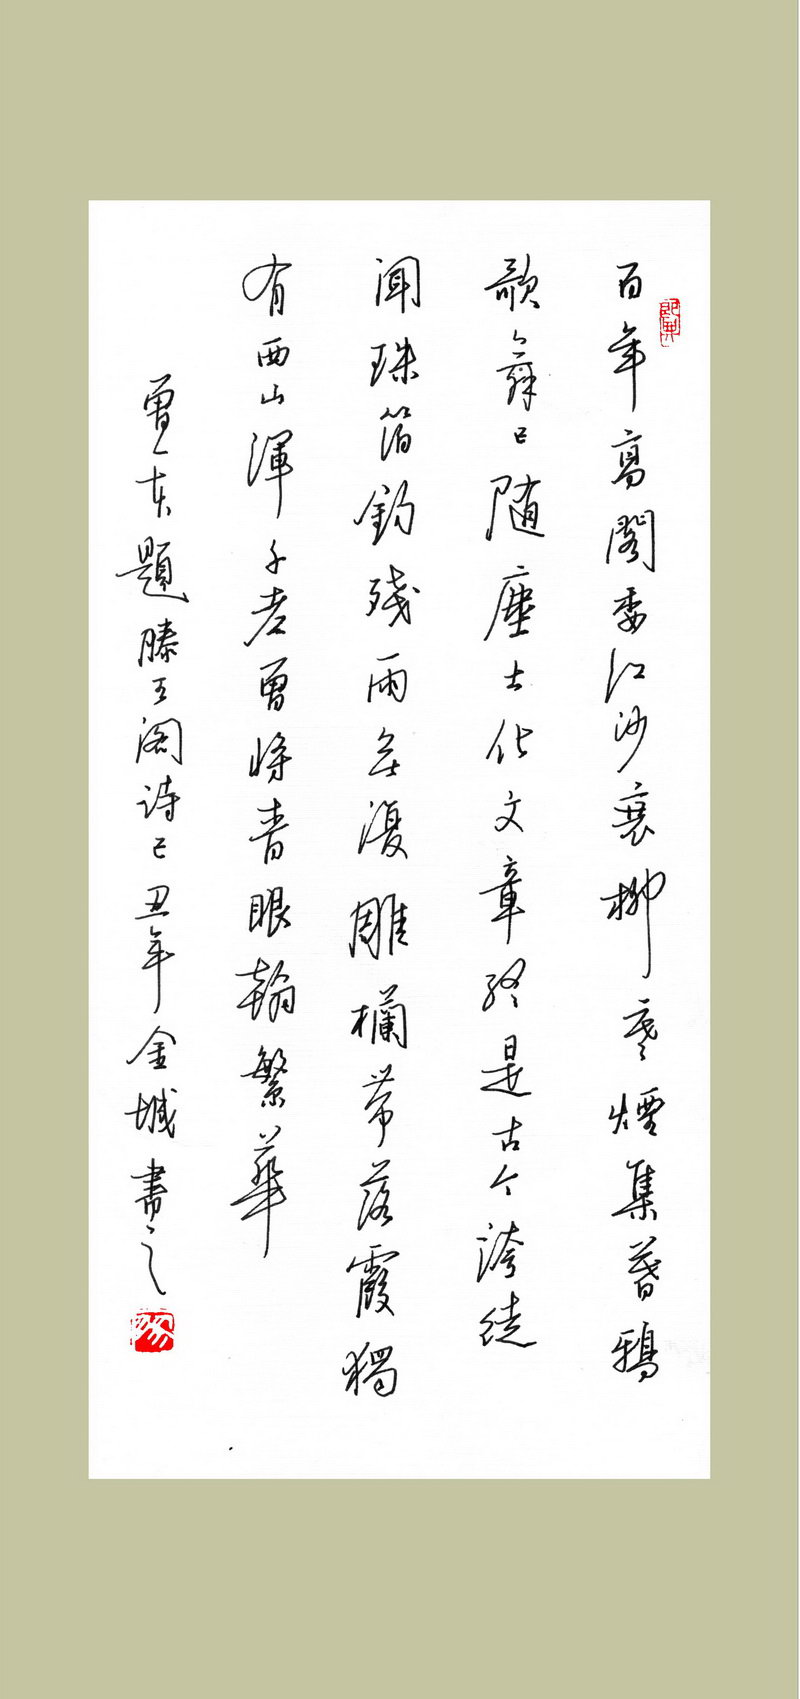 百年高閣委江沙衰柳寒煙集暮鴉
歌舞已随塵土化文章终是古今誇徒
聞珠箔鈎殘雨無復雕欄带落霞獨
有西山渾不老曾将青眼翰繁華
曹一东題滕王阁诗己丑年金城書之